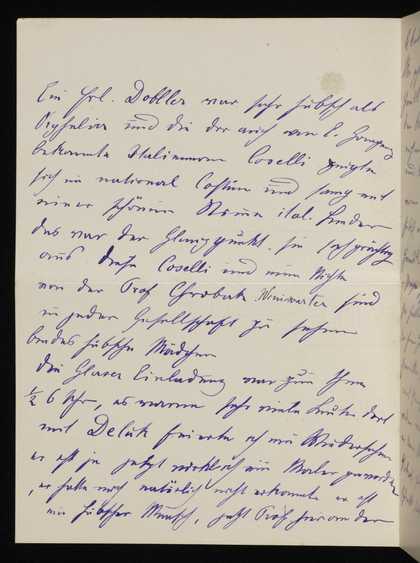 Ein Frl. Dobller war sehr hübsch als
und die dir auch von E.
bekannte Italienerin Coselli zeigte
sich im national Costüm und sang mit
einer schönen Stimme ital. Lieder
das war der Glanzpunkt. sie
aus diese Coselli und eine Nichte
von der Prof Chrobak Winiwarter sind
in jeder Gesellschaft zu sehen
beides hübsche Mädchen
Die Glaser Einladung war zum Thee
½ 6 Uhr, es waren sehr viele Leute dort
mit Deluk feierte ich ein Wiedersehen
er ist ja jetzt wirklich ein Maler geworden
, er hatte mich natürlich nicht erkannt er ist
ein hübscher Mensch, der